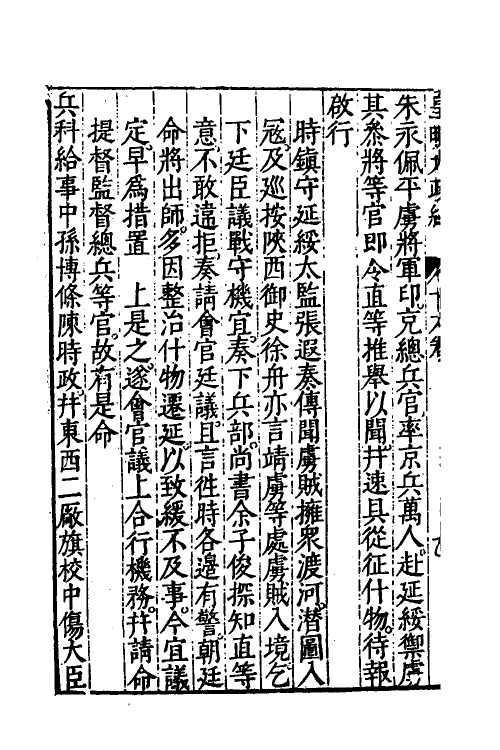 朱永佩平虜將軍印充總兵官率京兵萬人赴延綏禦虜
其叅將等官即令直等推舉以聞并速具從征什物待報
啟行
時鎮守延綏太監張遐奏傳聞虜賊擁衆渡河潛圖入
寇及廵按陜西御史徐舟亦言靖虜等處虜賊入境乞
下廷臣議戰守機宜奏下兵部尚書余子俊探知直等
意不敢違拒奏請會官廷議且言徃時各邊有警朝廷
命將出師多因整治什物遷延以致緩不及事今宜議
定早為措置 上是之遂會官議上合行機務并請命
提督監督總兵等官故有是命
兵科給事中孫博條陳時政并東西二厰旗校中傷大臣